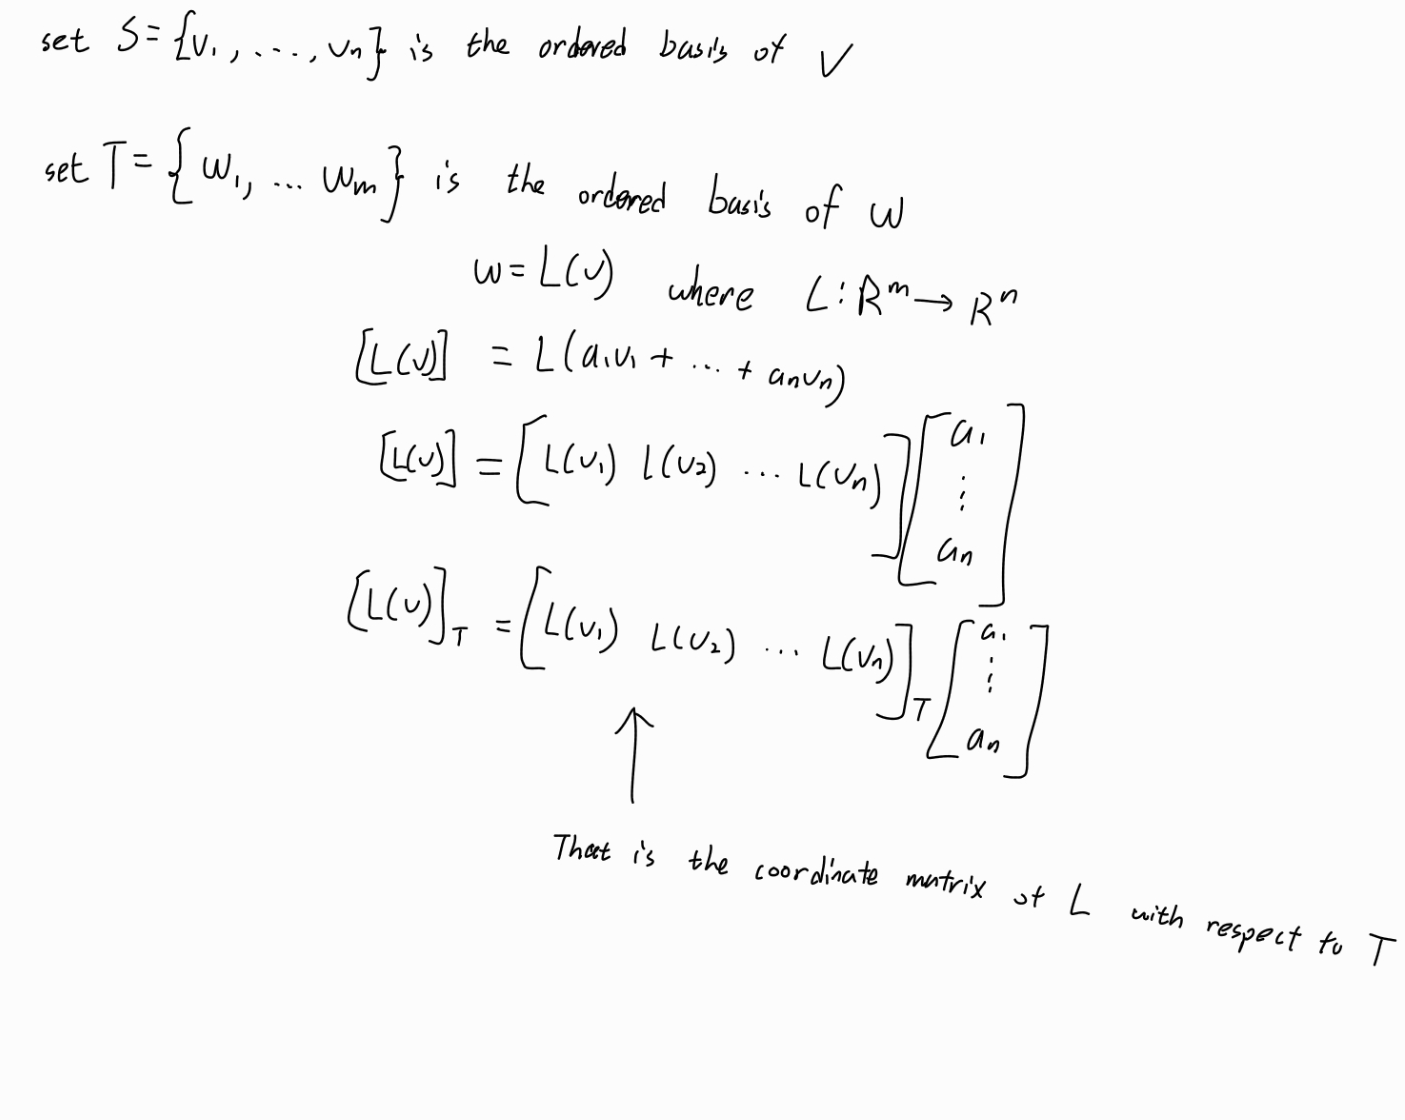 set S = {v₁, ..., vₙ} is the ordered basis of V
set T = {w₁, ... wₘ} is the ordered basis of W
w = L(v) where L : Rᵐ → Rⁿ
[L(v)] = L(a₁v₁ + ... + aₙvₙ)
[L(v)] = [L(v₁) L(v₂) ... L(vₙ)] [a₁ ⋮ aₙ]
[L(v)]_T = [L(v₁) L(v₂) ... L(vₙ)]_T [a₁ ⋮ aₙ]
↑
That is the coordinate matrix of L with respect to T